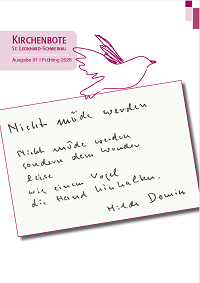 KIRCHENBOTE
ST. LEONHARD-SCHWEINAU
Ausgabe 91 I Frühling 2026
Nicht müde werden
Nicht müde werden
sondern dem Wunder
leise
wie einem Vogel
die Hand hinhalten.
Hilde Domin